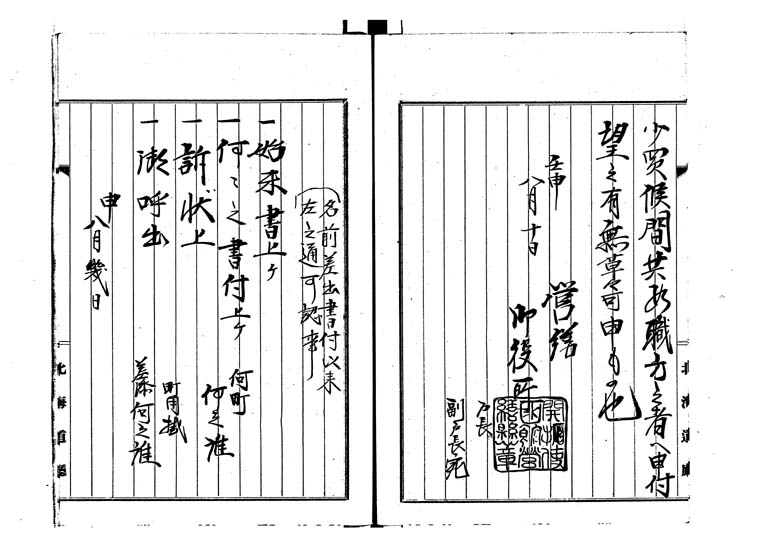 少買候間其段職方之者へ申付
望之有無草々可申もの也
壬申
八月十日
営繕
御役所
戸長
副戸長宛
名前差出書付以来
左之通可認事
一始末書上ケ
一何々之書付上ケ 何町 何之誰
一訴状上
一御呼出 町用掛 差添何之誰
申
八月幾日
北海道廳
北海道廳